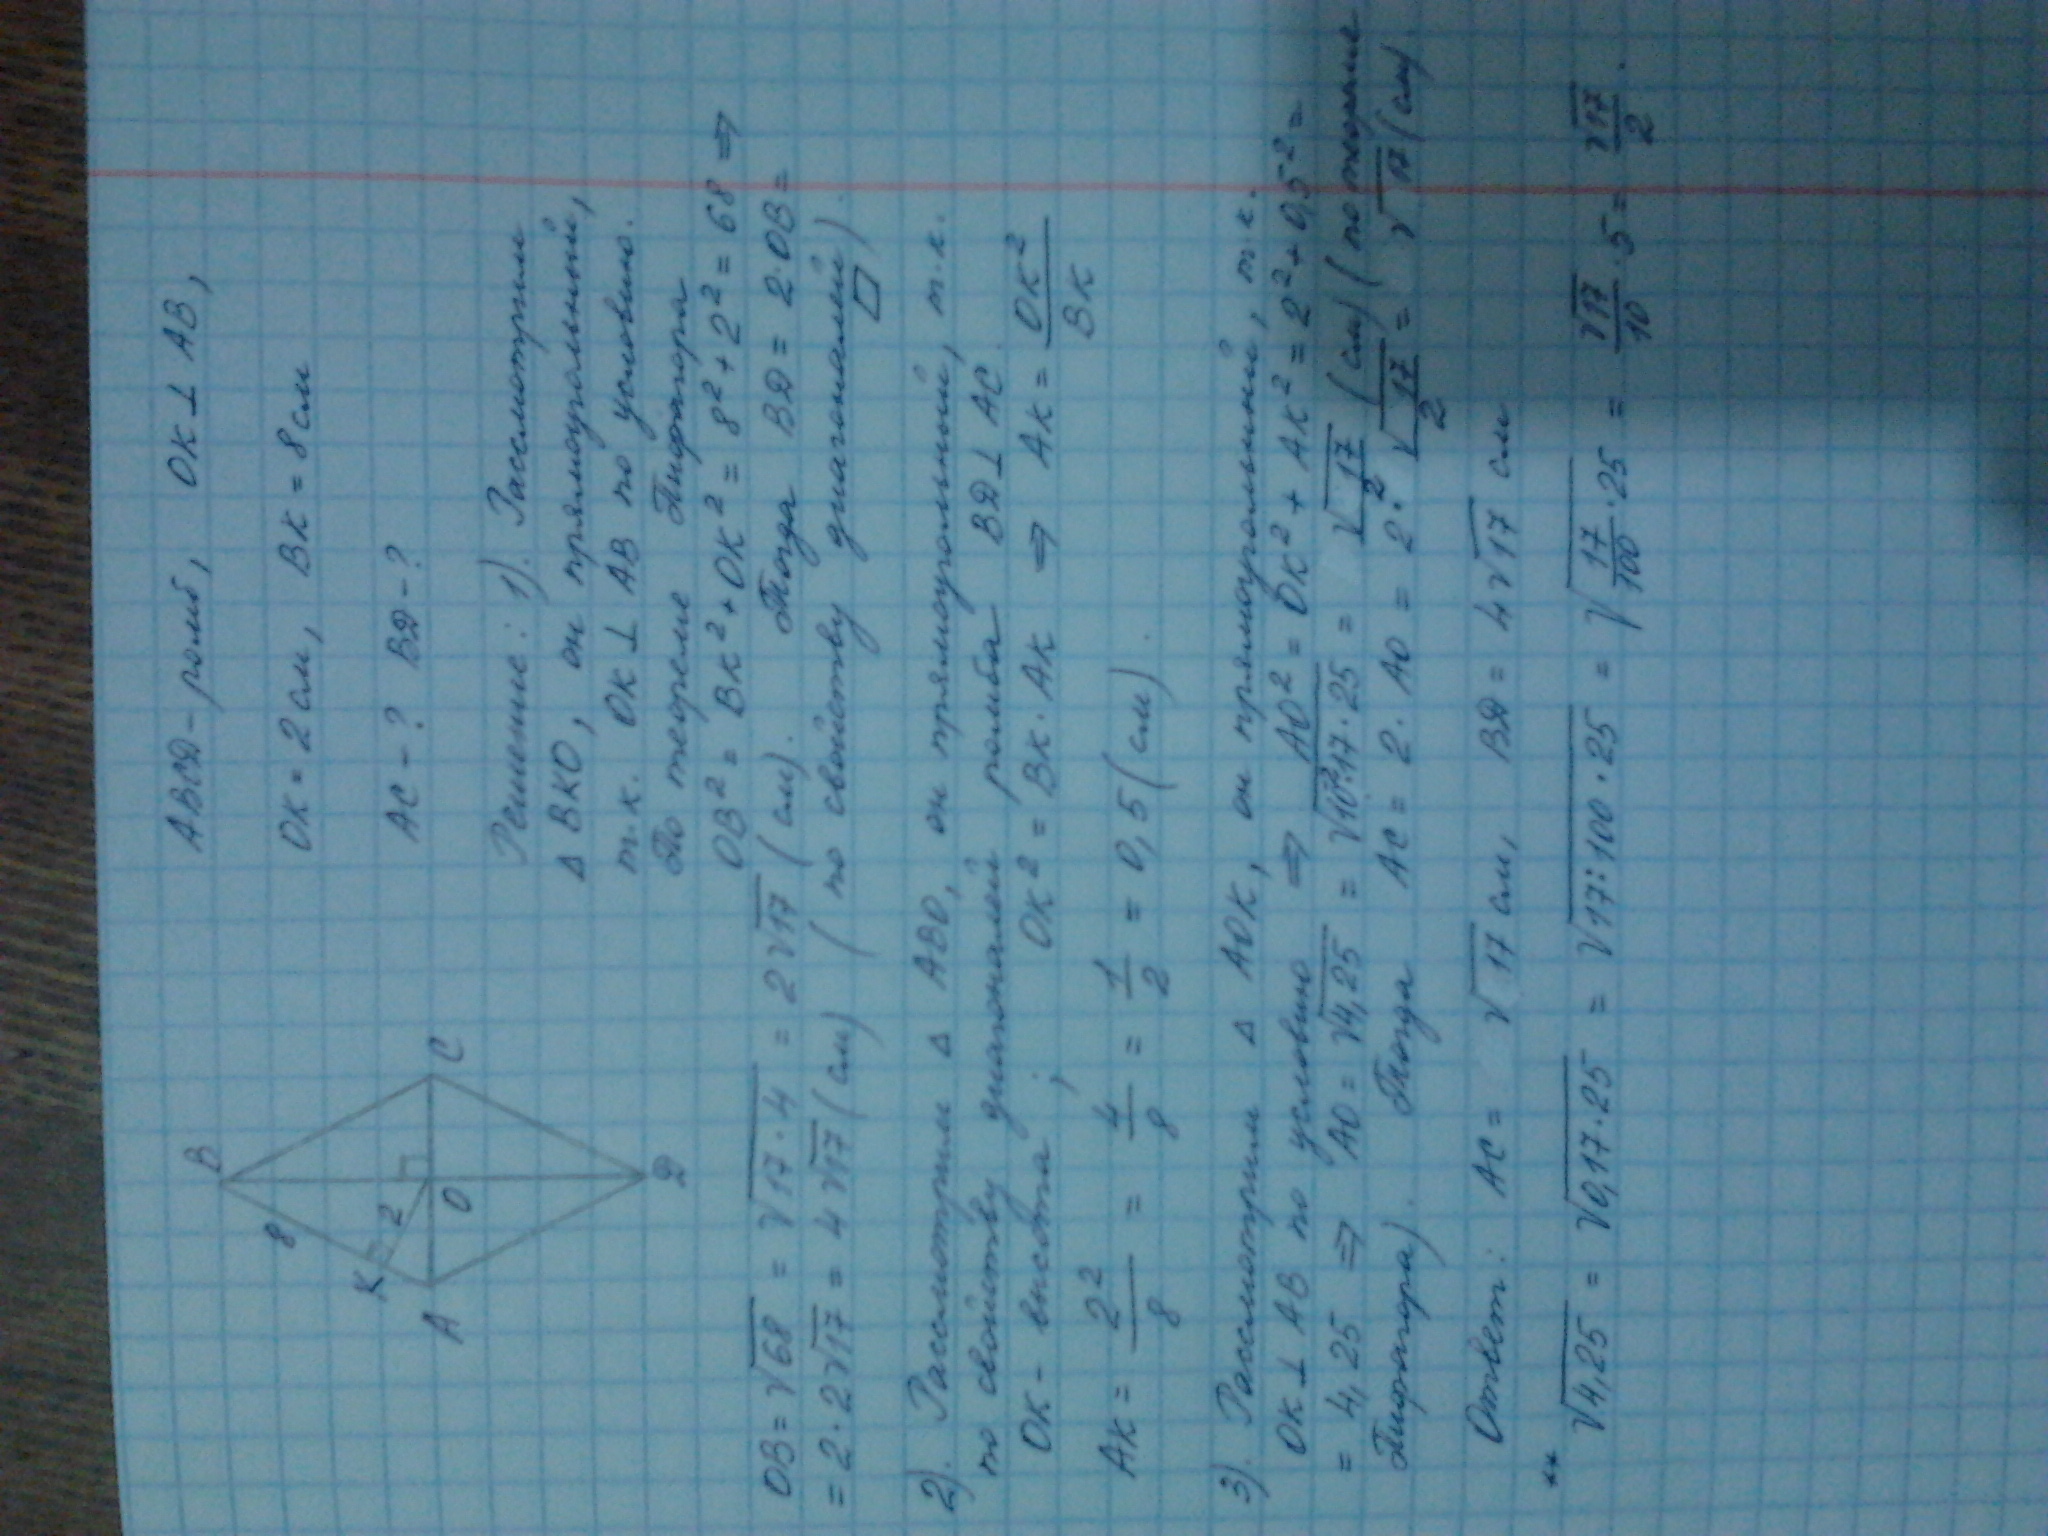 ABCD - ромб, OK ⊥ AB,
OK = 2 см, BK = 8 см
AC - ? BD - ?
B
8
K
2
A
O
C
D
Решение: 1). Рассмотрим
Δ BKO, он прямоугольный,
т.к. OK ⊥ AB по условию.
По теореме Пифагора
OB² = BK² + OK² = 8² + 2² = 68 ⇒
OB = √68 = √17·4 = 2√17 (см). Тогда BD = 2·OB =
= 2·2√17 = 4√17 (см) ( по свойству диагоналей ▱).
2). Рассмотрим Δ ABO, он прямоугольный, т.к.
по свойству диагоналей ромба BD ⊥ AC.
OK - высота; OK² = BK·AK ⇒ AK = OK²/BK
AK = 2²/8 = 4/8 = 1/2 = 0,5 (см).
3). Рассмотрим Δ AOK, он прямоугольный, т.к.
OK ⊥ AB по условию ⇒ AO² = OK² + AK² = 2² + 0,5² =
= 4,25 ⇒ AO = √4,25 = √10⁻²·17·25 = √17/2 (см) (по теореме
Пифагора). Тогда AC = 2·AO = 2·√17/2 = √17 (см)
Ответ: AC = √17 см, BD = 4√17 см
√4,25 = √0,17·25 = √17:100·25 = √17/100·25 = √17/10·5 = √17/2.